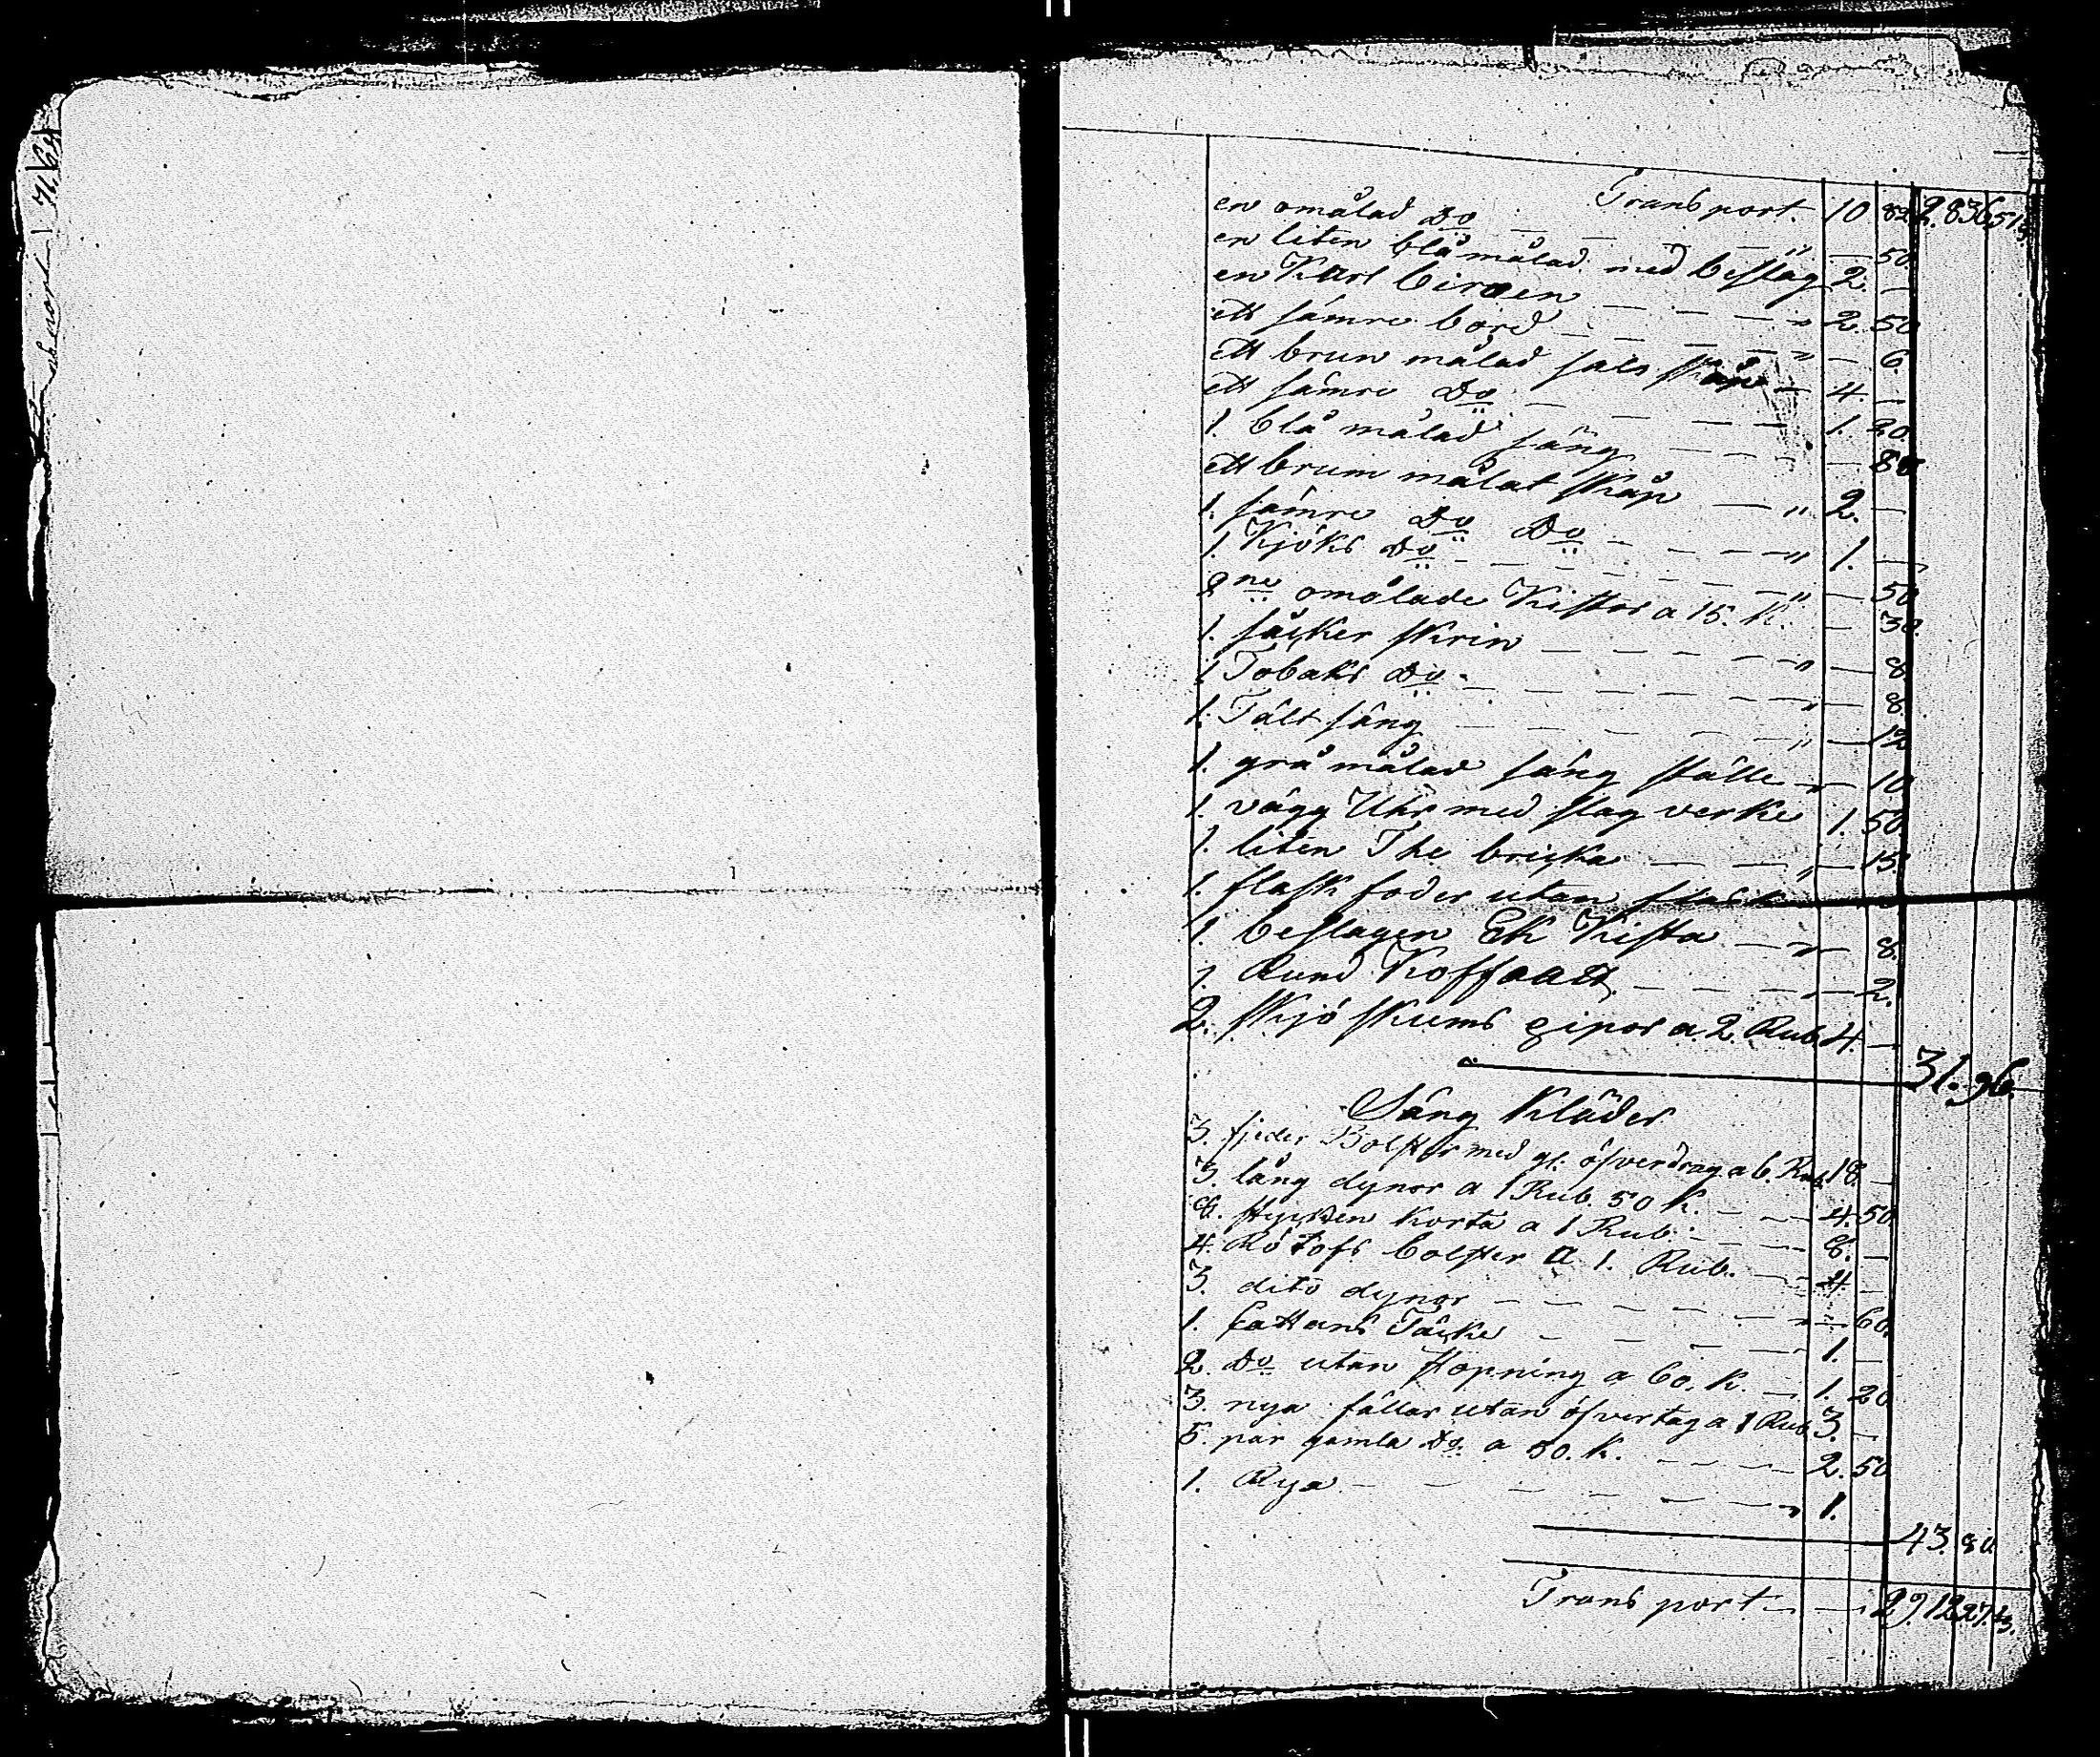 Transport. 10 82 2.836 51
en omålad Do — — — " — 50
en liten blå målad med beslag 2. —
en Karl Ciraen — — — " 2. 50
ett sämre bord — — — " — 6.
ett brun målad sals skåp — 4. —
ett sämre Do — — — 1. 20
1. blå målad säng — — — 80
ett brum målat skåp — " 2. —
1. sämre Do Do — — — " 1. —
1 Kjöks Do — — — " — 50
2ne omålade Kistor a 15. K. — 30.
1. såcker skrin — — — " — 8.
1 Tobaks Do — — — " — 8.
1. Tält säng — — — " — 12
1. grå målad säng ställe — " — 10
1. vägg Uhr med slag verke 1. 50
1. liten The bricka — — " — 15.
1. flask foder utan
1. beslagen Ek Kista — " — 8.
1. Rund Koffaatt — — — " — 2.
2. skjö skums pipor a. 2. Rub. 4. —
31. 96.
Säng Kläder
3. fjeder Bolster med gl. öfverdrag a 6. Rub. 18. —
3. lång dynor a 1 Rub. 50 K. — — 4. 50
8. stycken korta a 1 Rub. — — 8. —
4. Rötofs bolster a 1. Rub. — — 4. —
3. dito dynor — — — " — 60.
1. Cattuns Täcke — — — 1. —
2. Do utan stopning a 60. K. — 1. 20
3. nya fällar utan öfvertag a 1 Rub. 3. —
5. par gamla Do. a 50. K. — — 2. 50
1. Rya — — — " 1.
43. 80
Transport — — 2912 27